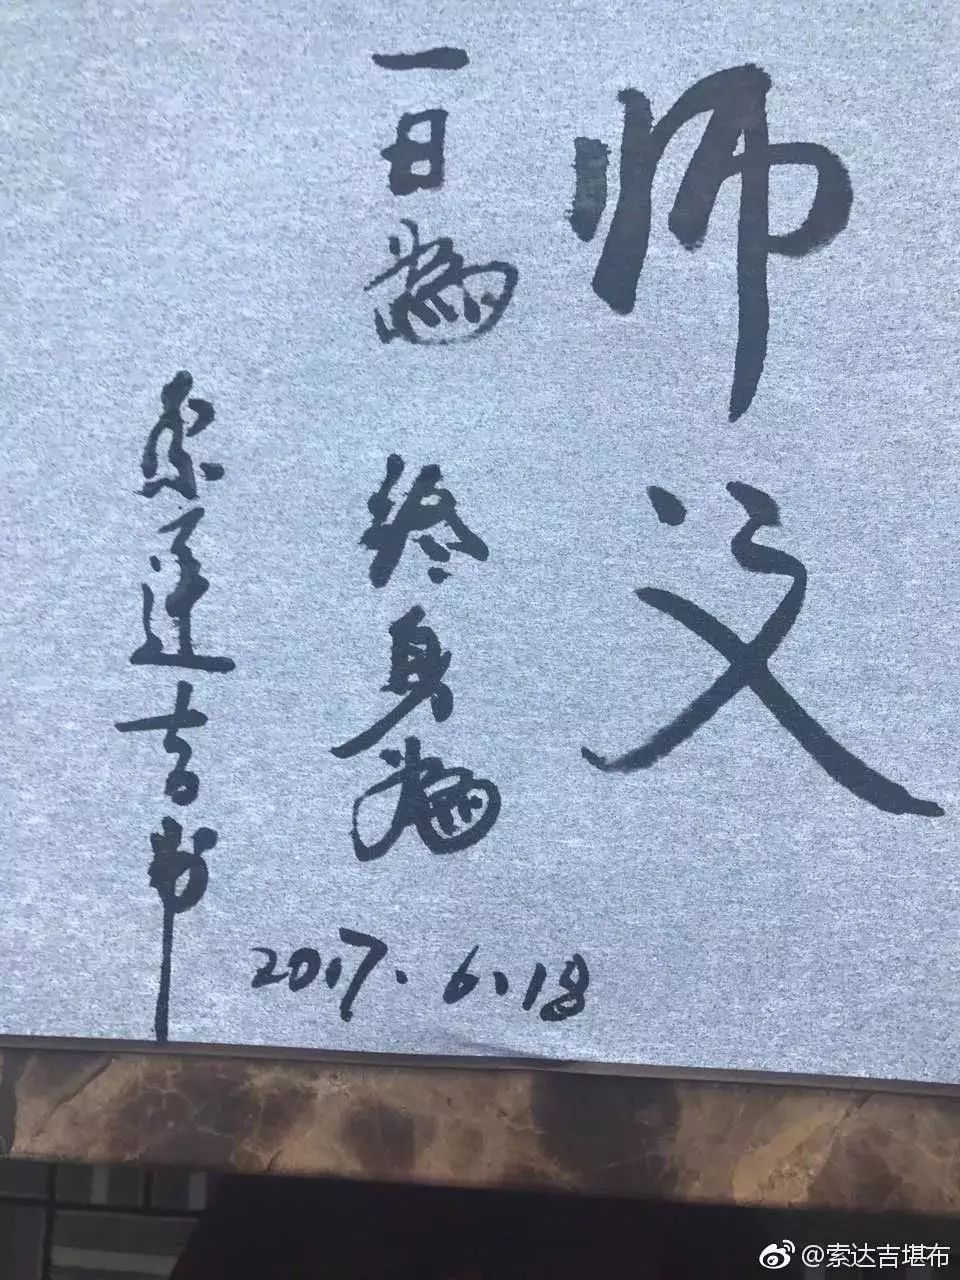 师父
一日為 终身為
索達吉书
2017.6.18
@索达吉堪布